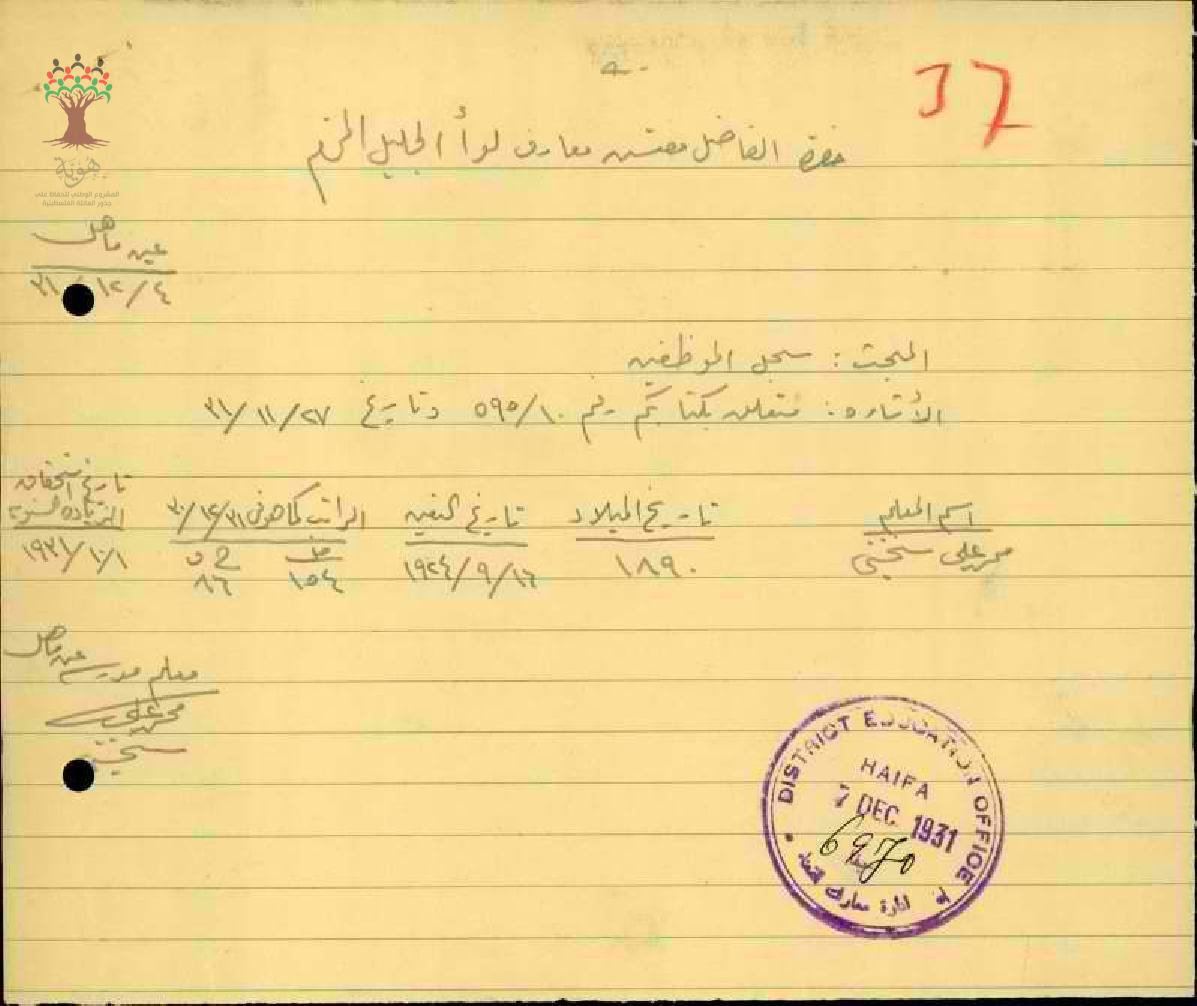 37
حضرة الفاضل مفتش معارف لوأ الجليل المحترم
هوية
المشروع الوطني للحفاظ على
جذور العائلة الفلسطينية
عين ماهل
٣١/١٢/٤
المبحث: سجل الموظفين
الأشاره: متعلق بكتابكم رقم ٥٩٥/١٠ وتاريخ ٣١/١١/٢٧
اسم المعلم تاريخ الميلاد تاريخ التعيين الراتب كما هو في ٣٠/١٢/٣١ تاريخ استحقاق الزياده السنويه
محمد علي سختيني ١٨٩٠ ١٩٢٤/٩/١٦ ١٥٤ ٨٦ ١٩٣١/١٠/١
معلم مدرسة عين ماهل
محمد علي
سختيني
DISTRICT EDUCATION OFFICE
HAIFA
7 DEC 1931
6970
ادارة معارف